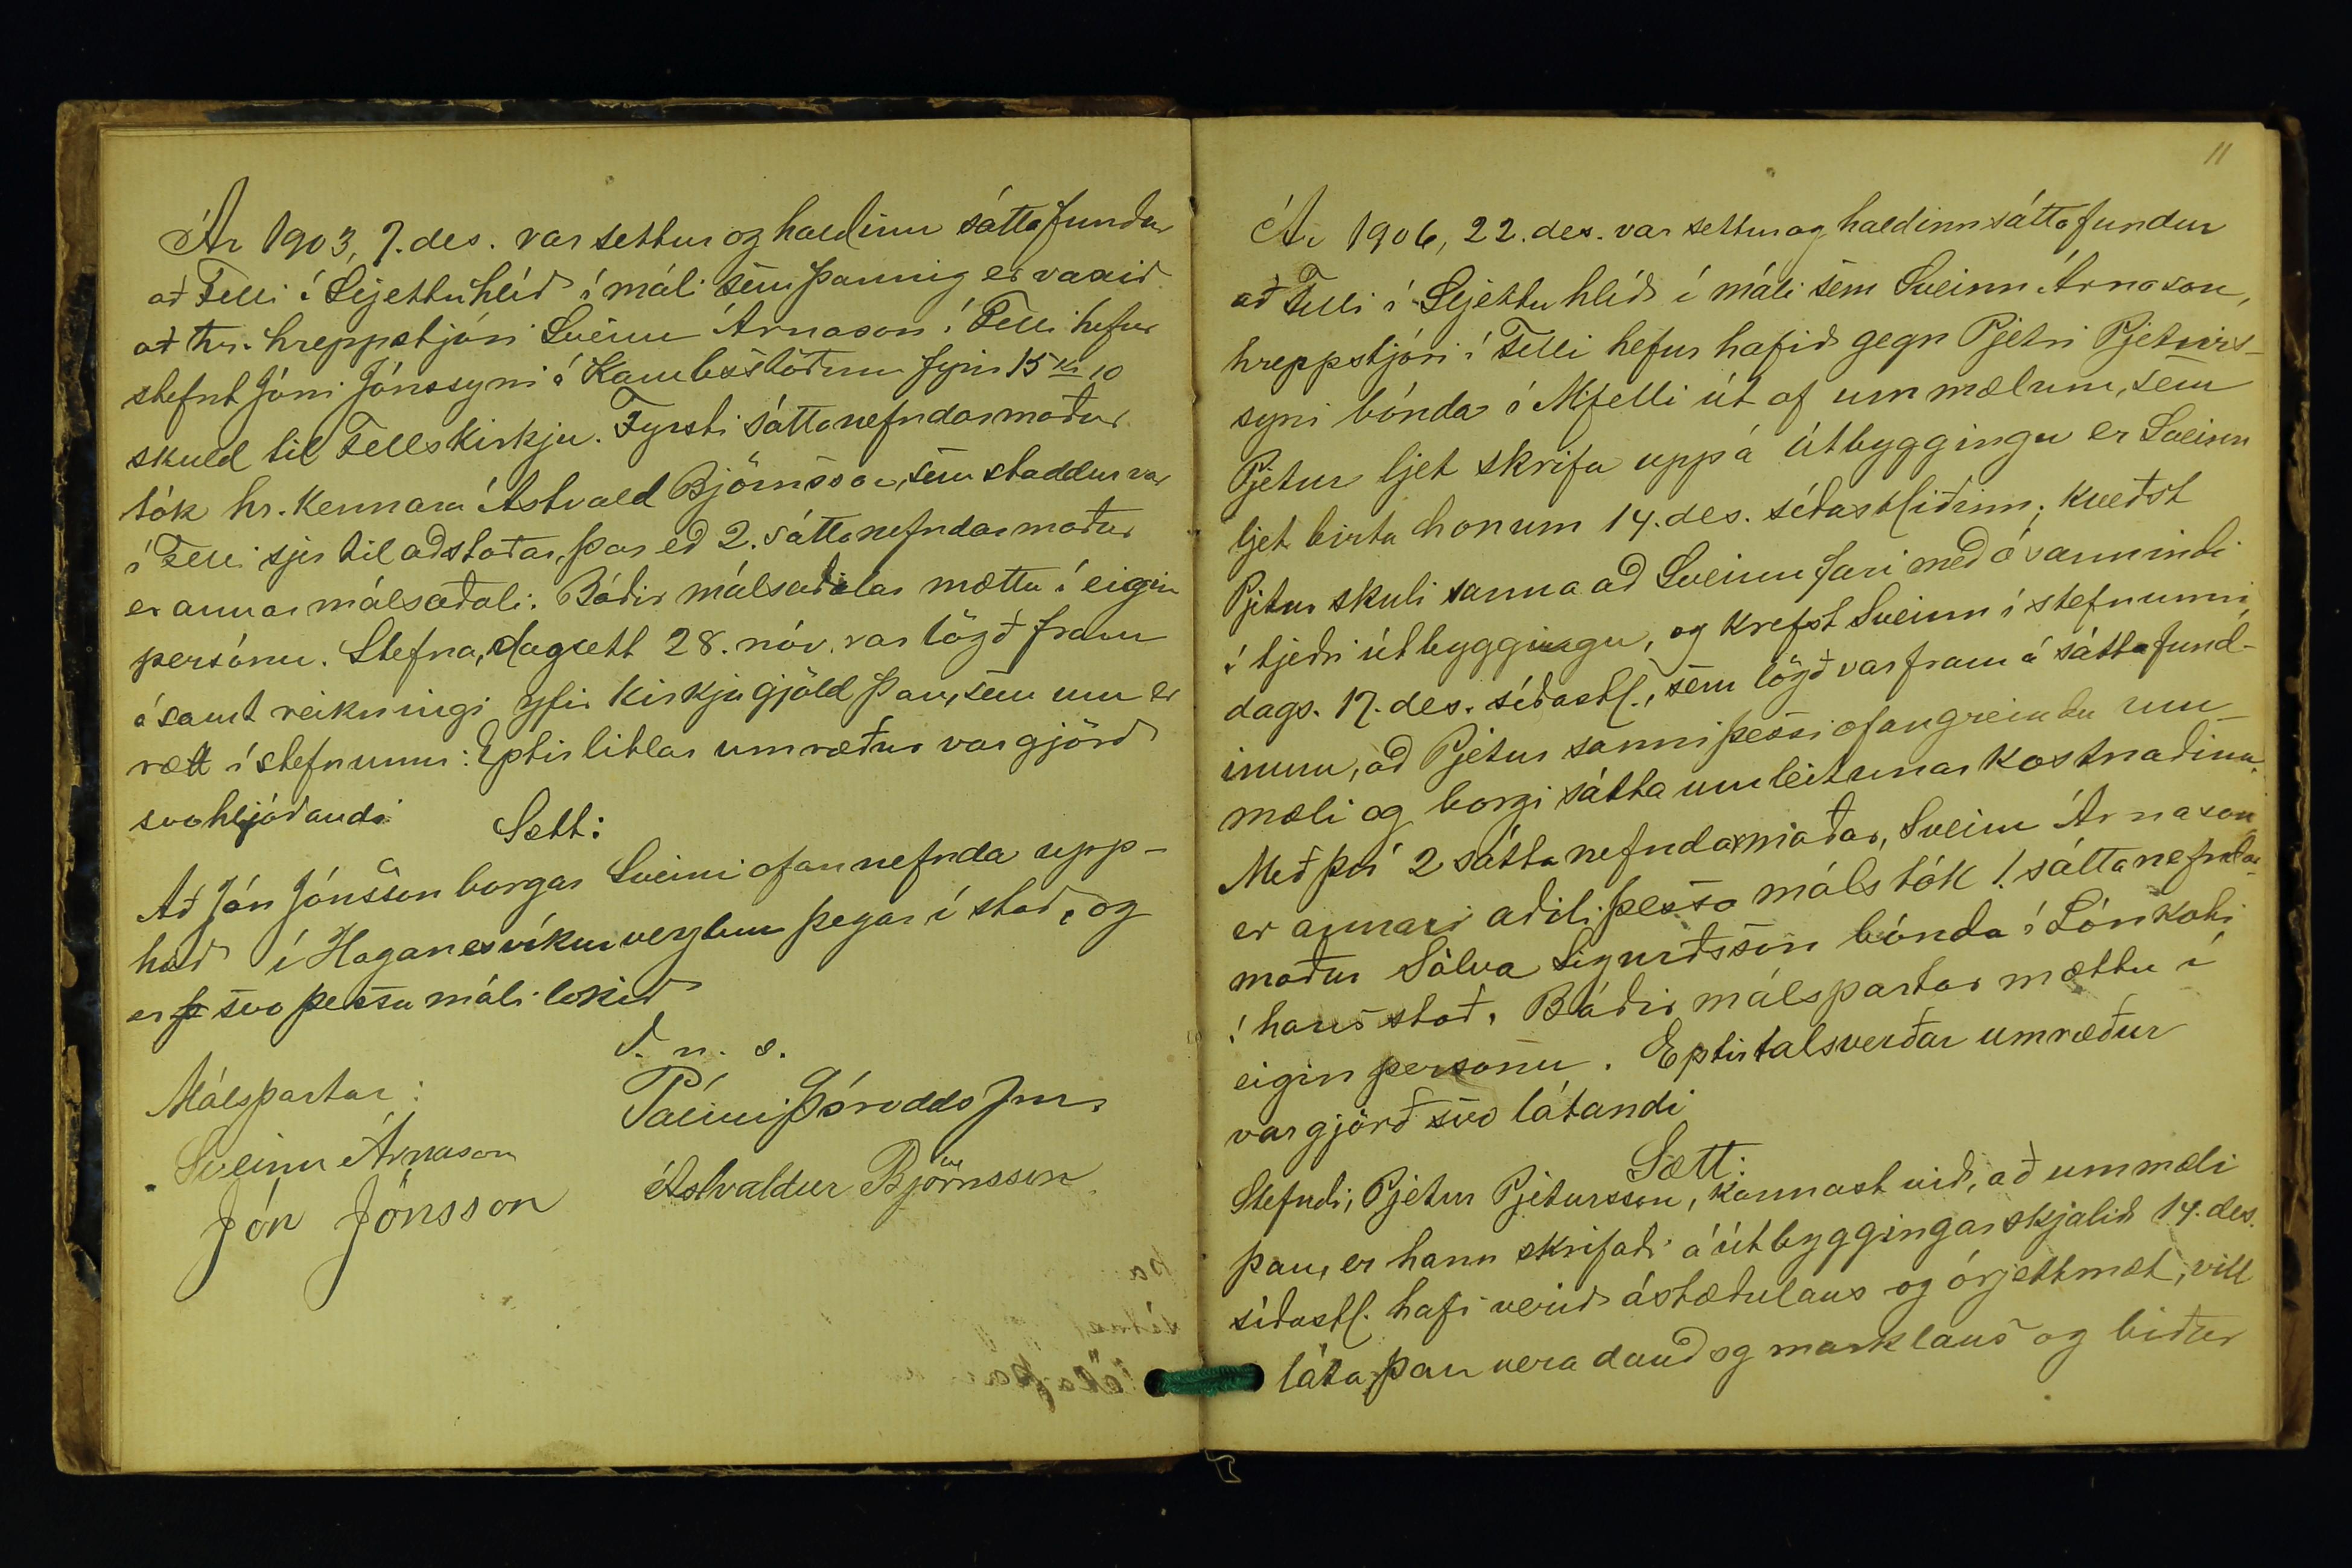 Ár 1903, 7. des. var settur og haldinn sáttafundur
að Felli í Sljettuhlíð í máli sem þannig er vaxið
að hr. hreppstjóri Sveinn Árnason í Felli hefur
stefnt Jóni Jónssyni á Kambsstöðum fyrir 15 kr 10
skuld til Fellskirkju. Fyrsti sáttanefndarmaður
tók hr. kennara Ástvald Björnsson, sem staddur var
í Felli sjer til aðstoðar, þar eð 2. sáttanefndarmaður
er annar málsaðali. Báðir málsaðilar mættu í eigin
persónu. Stefna, dagsett 28. nóv. var lögð fram
ásamt reikningi yfir kirkjugjöld þau, sem um er
rætt í stefnunni: Eptir litlar umræður var gjörð
svohljóðandi
Sætt:
Að Jón Jónsson borgar Sveini ofannefnda upp-
hæð í Haganesvíkurverzlun þegar í stað, og
er svo þessu máli lokið
D. u. s.
Málspartar:
Pálmi Þóroddsson.
Sveinn Árnason
Ástvaldur Björnsson
Jón Jónsson
11
Ár 1906, 22. des. var settur og haldinn sáttafundur
að Felli í Sljettuhlíð í máli sem Sveinn Árnason,
hreppstjóri í Felli hefur hafið gegn Pjetri Pjeturs-
syni bónda í M.felli út af ummælum, sem
Pjetur ljet skrifa uppá útbyggingu er Sveinn
ljet birta honum 14. des. síðastliðinn; kveðst
Pjetur skuli sanna að Sveinn fari með ósannindi
í tjeðri útbyggingu, og krefst Sveinn í stefnunni
dags. 17. des. síðastl., sem lögð var fram á sáttafund-
inum, að Pjetur sanni þessi ofangreindu um-
mæli og borgi sáttaumleitunar kostnaðinn.
Með því 2 sáttanefndarmaður, Sveinn Árnason
er annar aðili þessa máls tók 1. sáttanefndar-
maður Sölva Sigurðsson bónda í Lónkoti
í hans stað. Báðir málspartar mættu í
eigin persónu. Eptir talsverðar umræður
var gjörð svo látandi
Sætt:
Stefndi, Pjetur Pjetursson, kannast við, að ummæli
þau, er hann skrifaði á útbyggingarskjalið 14. des.
síðastl. hafi verið ástæðulaus og órjettmæt, vill
láta þau vera dauð og marklaus og biður